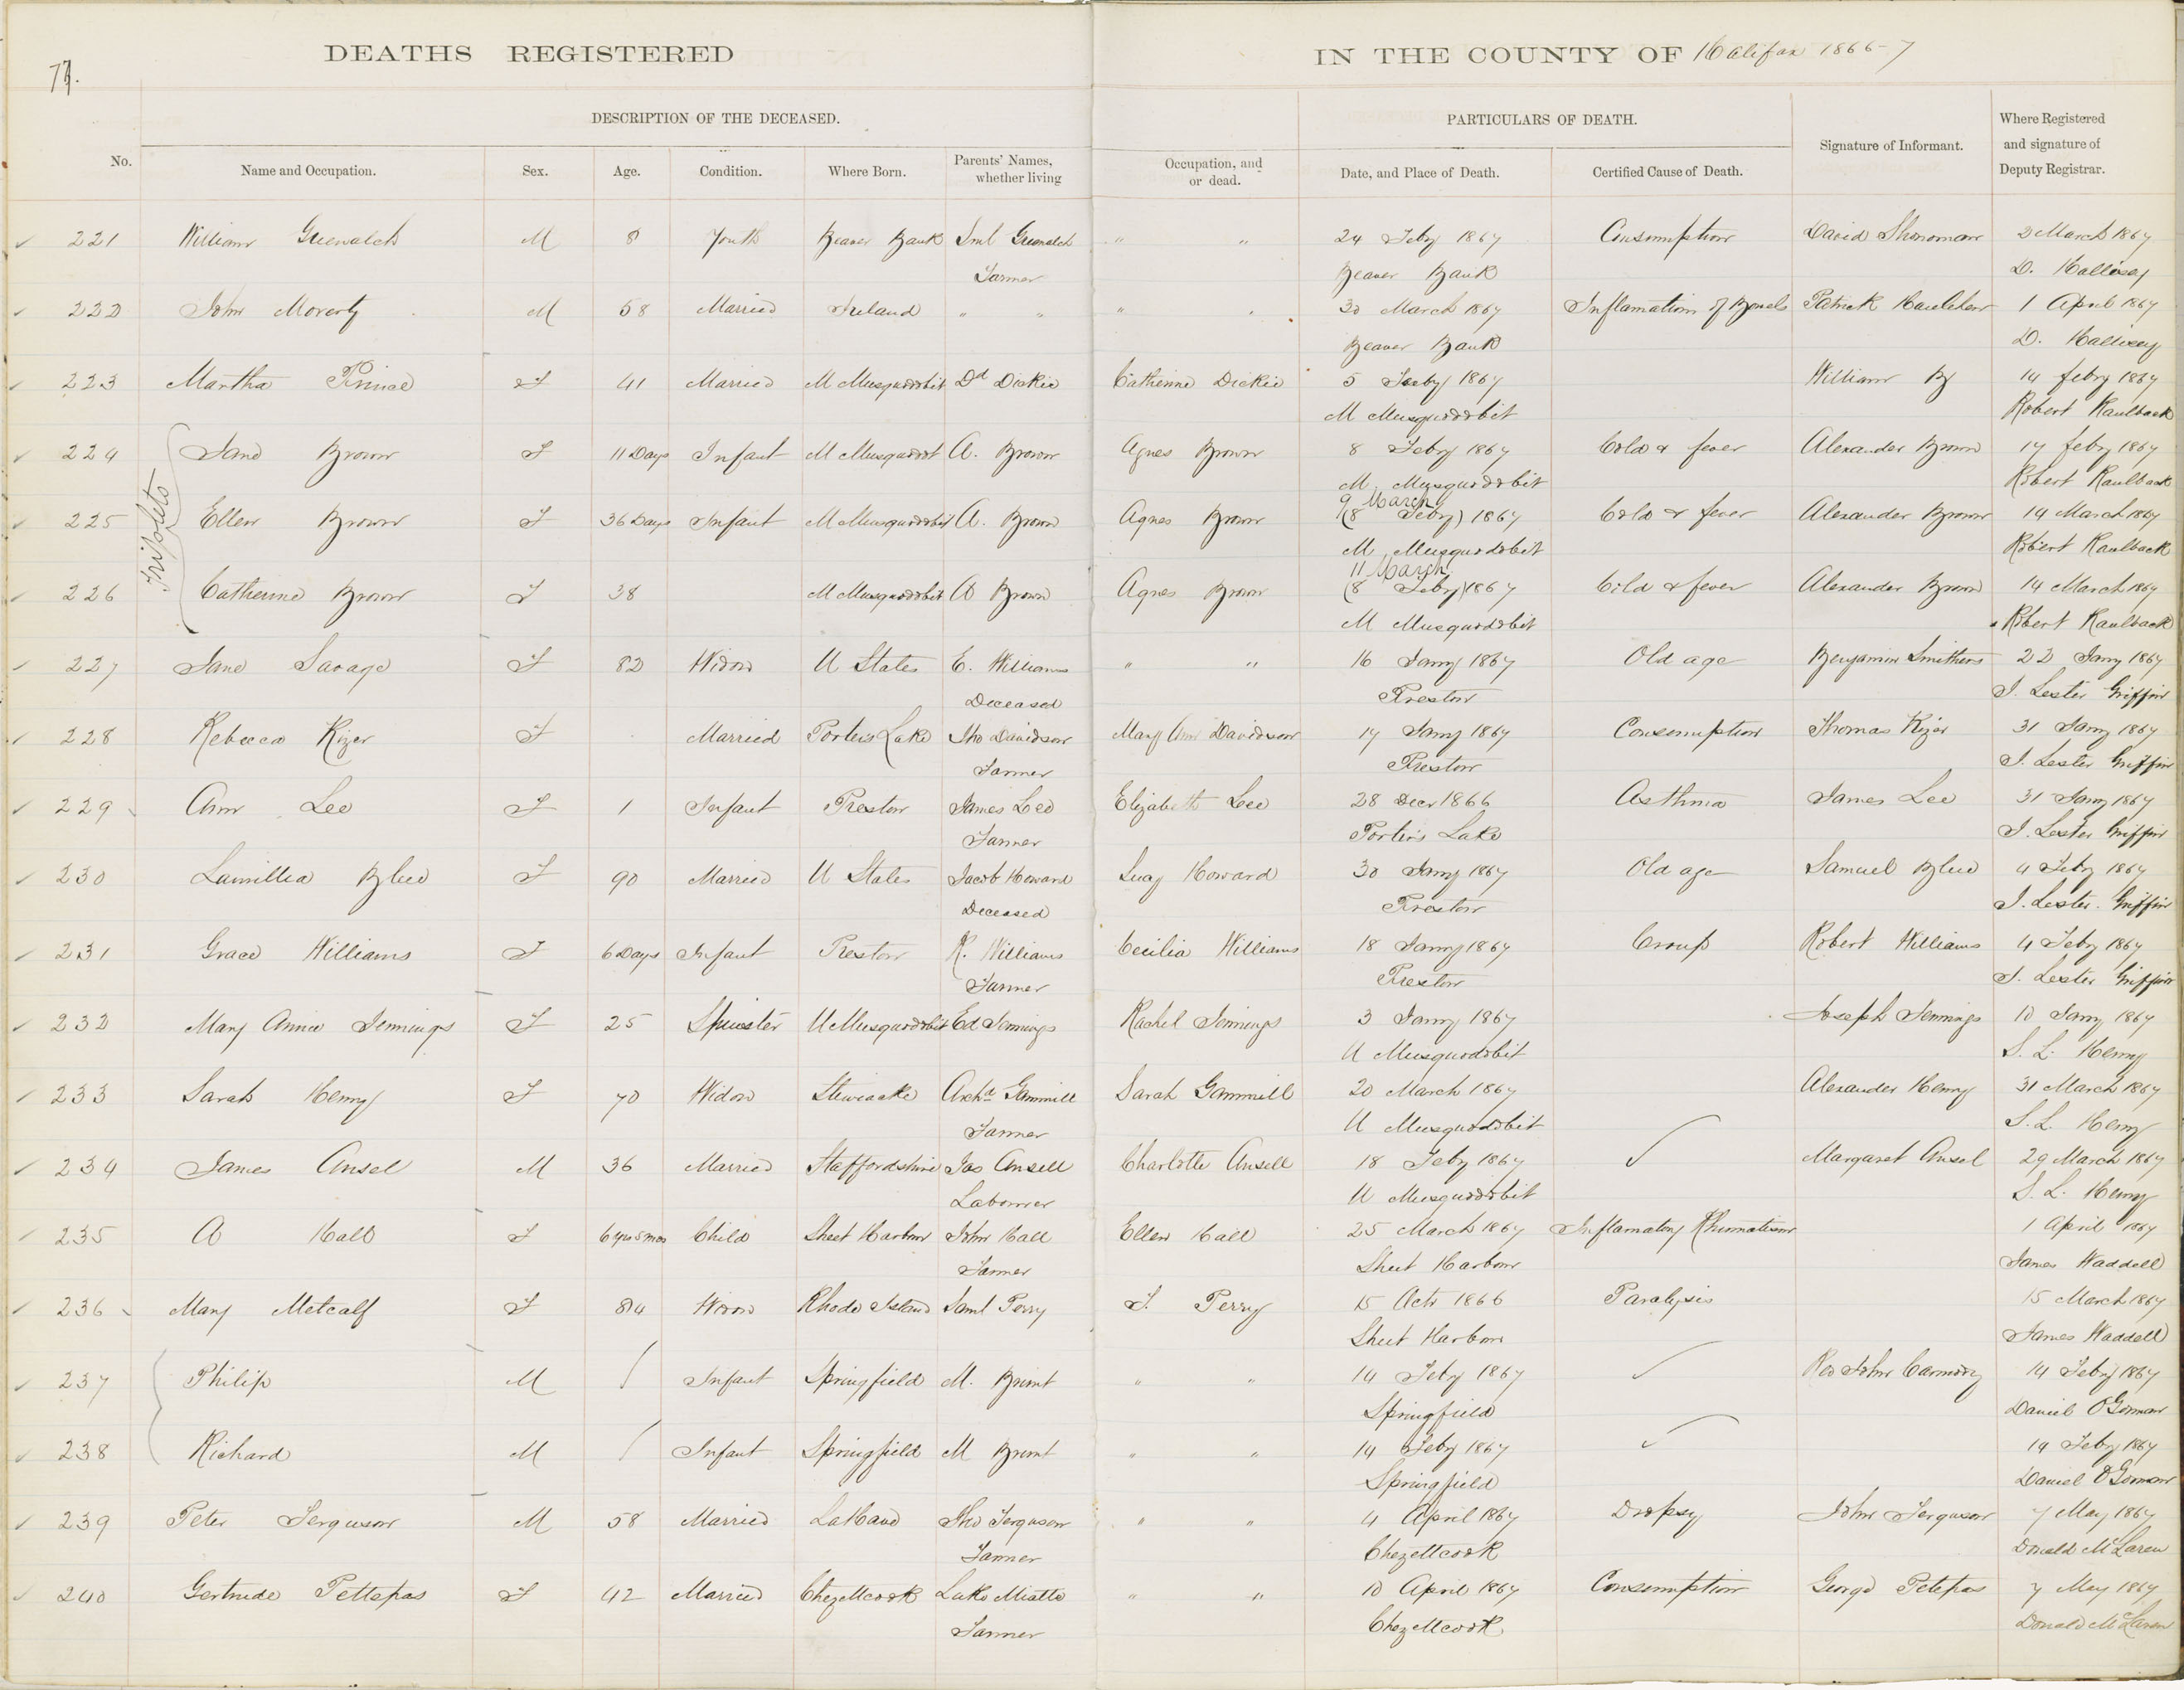 77.
DEATHS REGISTERED IN THE COUNTY OF Halifax 1866-7
DESCRIPTION OF THE DECEASED. PARTICULARS OF DEATH. Signature of Informant. Where Registered and signature of Deputy Registrar.
No. Name and Occupation. Sex. Age. Condition. Where Born. Parents' Names, whether living Occupation, and or dead. Date, and Place of Death. Certified Cause of Death.
221 William M 8 Youth Beaver Bank " " 24 Feby 1867 Consumption David 2 March 1867
Farmer Beaver Bank D. Hallisey
222 John Moverty M 58 Married Ireland " " " " 30 March 1867 Inflamation of Bowels Patrick 1 April 1867
Beaver Bank D. Hallisey
223 Martha Prince F 41 Married M Musquodobit Dd Dickie Catherine Dickie 5 Feby 1867 William 14 feby 1867
M Musquodobit Robert Kaulback
Tripplets
224 Jane Brown F 11 Days Infant M Musquodot A. Brown Agnes Brown 8 Feby 1867 Cold & fever Alexander Brown 17 feby 1867
M. Musquodobit Robert Kaulback
9 March
225 Ellen Brown F 36 Days Infant M Musquodobit A. Brown Agnes Brown (8 Feby) 1867 Cold & fever Alexander Brown 14 March 1867
M Musquodobit Robert Kaulback
11 March
226 Catherine Brown F 38 M Musquodobit A Brown Agnes Brown (8 Feby) 1867 Cold & fever Alexander Brown 14 March 1867
M Musquodobit Robert Kaulback
227 Jane Savage F 82 Widow U States E. Williams " " 16 Jany 1867 Old age Benjamin Smithers 22 Jany 1867
Deceased Preston J. Lester Griffin
228 Rebecca Kizer F Married Porters Lake Jno Davidson Mary Ann Davidson 17 Jany 1867 Consumption Thomas Kizer 31 Jany 1867
Farmer Preston J. Lester Griffin
229 Ann Lee F 1 Infant Preston James Lee Elizabeth Lee 28 Decr 1866 Asthma James Lee 31 Jany 1867
Farmer Porters Lake J. Lester Griffin
230 Lamillia Blue F 90 Married U States Jacob Howard Lucy Howard 30 Jany 1867 Old age Samuel Blue 4 Feby 1867
Deceased Preston J. Lester Griffin
231 Grace Williams F 6 Days Infant Preston R. Williams Cecilia Williams 18 Jany 1867 Croup Robert Williams 4 Feby 1867
Farmer Preston J. Lester Griffin
232 Mary Annie Jennings F 25 Spinster U Musquodobit Ed Jennings Rachel Jennings 3 Jany 1867 Joseph Jennings 10 Jany 1867
U Musquodobit S. L. Henry
233 Sarah Henry F 70 Widow Stewiacke Archd Gammill Sarah Gammill 20 March 1867 Alexander Henry 31 March 1867
Farmer U Musquodobit S. L. Henry
234 James Ansel M 36 Married Staffordshire Jas Ansell Charlotte Ansell 18 Feby 1867 Margaret Ansel 29 March 1867
Labourer U Musquodobit S. L. Henry
235 A Hall F 6 yrs 5 mos Child Sheet Harbour John Hall Ellen Hall 25 March 1867 Inflamatory Rhumatism 1 April 1867
Farmer Sheet Harbour James Waddell
236 Mary Metcalf F 84 Widow Rhode Island Saml Perry S. Perry 15 Octr 1866 Paralysis 15 March 1867
Sheet Harbour James Waddell
237 Philip M Infant Springfield M. Brunt " " 14 Feby 1867 Rev John Carmody 14 Feby 1867
Springfield Daniel O'Gorman
238 Richard M Infant Springfield M Brunt " " 14 Feby 1867 14 Feby 1867
Springfield Daniel O'Gorman
239 Peter Ferguson M 58 Married LaHave Jno Ferguson " " 4 April 1867 Dropsy John Ferguson 7 May 1867
Farmer Chezettcook Donald McLaren
240 Gertrude Pettepas F 42 Married Chezettcook Luke Miatte " " 10 April 1867 Consumption George Petepas 7 May 1867
Farmer Chezettcook Donald McLaren